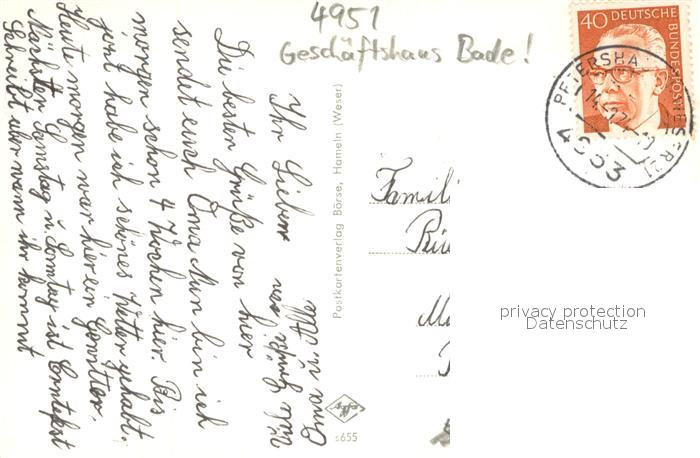 4951
Geschäftshaus Bade!
40 DEUTSCHE BUNDESPOST
PETERSHA WESER 1
4953
Ihr Lieben
Die besten Grüße von hier
sendet euch Oma Nun bin ich
morgen schon 4 Wochen hier. Bis
jetzt habe ich schönes Wetter gehabt.
Heute morgen war hier ein Gewitter.
Nächsten Samstag u. Sonntag ist Erntefest
Schreibt aber wann ihr kommt
Oma u.
Postkartenverlag Börse, Hameln (Weser)
Famili
s655
privacy protection
Datenschutz